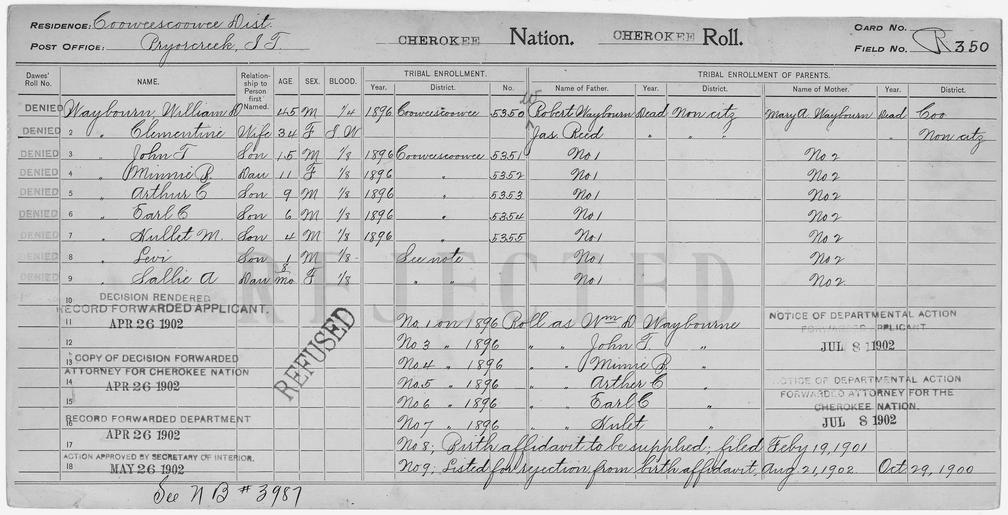 RESIDENCE: Coowescoowee Dist.
POST OFFICE: Pryorcreek, I.T.
CHEROKEE Nation. CHEROKEE Roll.
CARD NO.
FIELD NO. R 350
Dawes' Roll No. NAME. Relationship to Person first Named. AGE SEX. BLOOD. TRIBAL ENROLLMENT. Year. District. No. TRIBAL ENROLLMENT OF PARENTS. Name of Father. Year. District. Name of Mother. Year. District.
DENIED Waybourn, William D 45 M 1/4 1896 Coowescoowee 5350 Robert Waybourn Dead Non citz Mary A. Waybourn Dead Coo
DENIED 2 " Clementine Wife 34 F I W Jas. Reed " " " Non citz
DENIED 3 " John T Son 15 M 1/8 1896 Coowescoowee 5351 No 1 No 2
DENIED 4 " Minnie P. Dau 11 F 1/8 1896 " 5352 No 1 No 2
DENIED 5 " Arthur C Son 9 M 1/8 1896 " 5353 No 1 No 2
DENIED 6 " Earl C Son 6 M 1/8 1896 " 5354 No 1 No 2
DENIED 7 " Hullet M. Son 4 M 1/8 1896 " 5355 No 1 No 2
DENIED 8 " Levi Son 1 M 1/8 See note No 1 No 2
DENIED 9 " Sallie A Dau 8 mo F 1/8 " " No 1 No 2
REJECTED
REFUSED
10 DECISION RENDERED
RECORD FORWARDED APPLICANT.
11 APR 26 1902
12
13 COPY OF DECISION FORWARDED
ATTORNEY FOR CHEROKEE NATION
14 APR 26 1902
15
16 RECORD FORWARDED DEPARTMENT
APR 26 1902
17
ACTION APPROVED BY SECRETARY OF INTERIOR.
18 MAY 26 1902
No. 1 on 1896 Roll as Wm D Waybourne
No 3 " 1896 " " John T. "
No. 4 " 1896 " " Minnie P. "
No. 5 " 1896 " " Arther C "
No 6 " 1896 " " Earl C "
No. 7 " 1896 " " Hulet "
No 8; Birth affidavit to be supplied; filed Feby 19, 1901
No 9; Listed for rejection from birth affidavit, Aug 21, 1902. Oct 29, 1900
NOTICE OF DEPARTMENTAL ACTION
FORWARDED APPLICANT.
JUL 8 1902
NOTICE OF DEPARTMENTAL ACTION
FORWARDED ATTORNEY FOR THE
CHEROKEE NATION.
JUL 8 1902
See N B # 3987